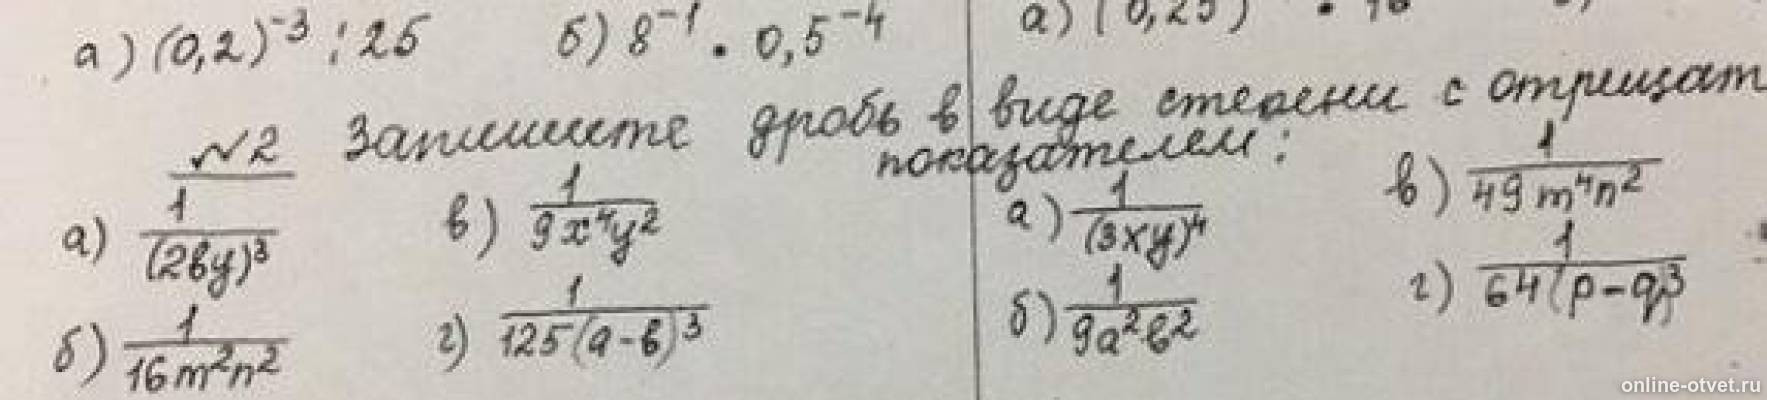 а) (0,2)⁻³ : 25 б) 8⁻¹ · 0,5⁻⁴
№2 Запишите дробь в виде степени с отрицат
показателем:
а) 1/(2by)³ в) 1/9x⁴y²
б) 1/16m²n² г) 1/125(a-b)³
а) 1/(3xy)⁴ в) 1/49m⁴n²
б) 1/9a²b² г) 1/64(p-q)³
online-otvet.ru